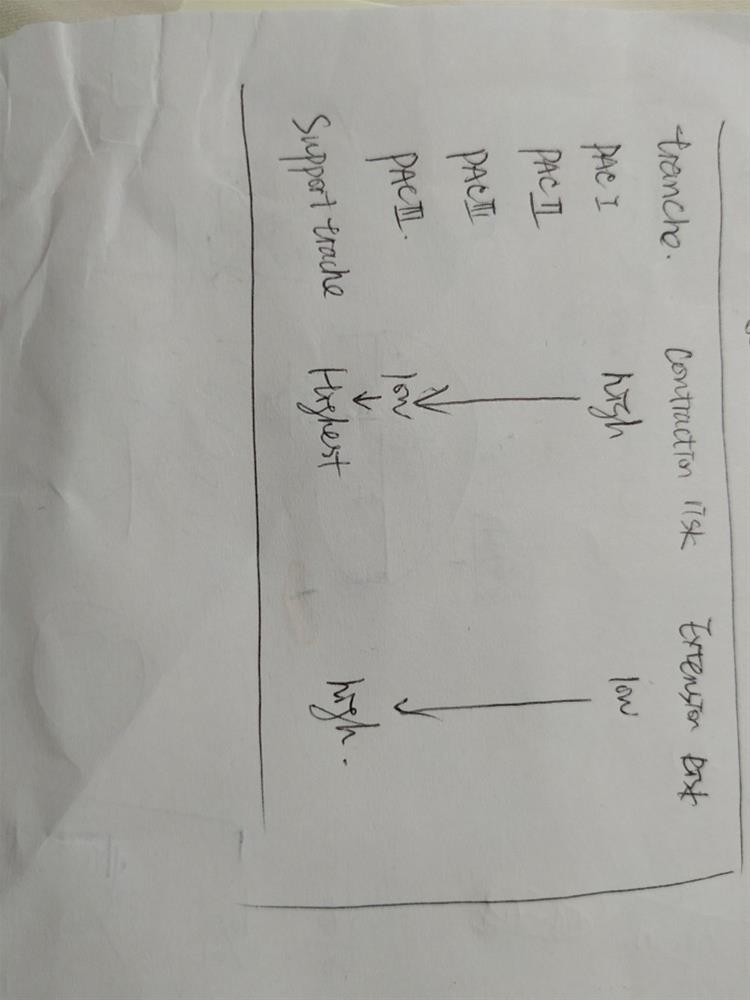 tranche. Contraction risk Extension Risk
PAC I high low
PAC II
PAC III
PAC III. low
Support trache Highest high.